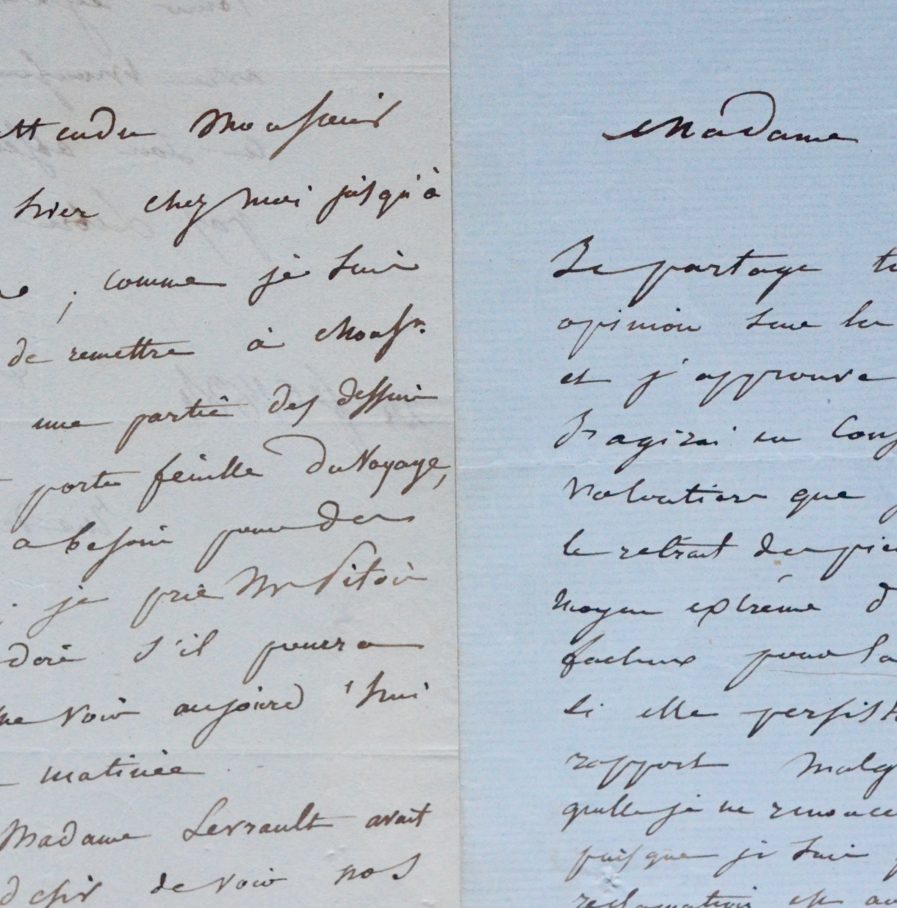 attendu Monsieur
hier chez moi jusqu'à
; comme je suis
de remettre à Monsr.
une partie des dessins
porte feuille du Voyage,
a besoin pour des
je prie Mr Pitois
s'il pourra
me voir aujourd'hui
matinée.
Madame Levrault avait
desir de voir nos
Madame
Je partage
opinion sur la
et j'approuve
J'agirai en
que
le retrait des
moyen extrême
facheux pour
si elle
rapport
qu'elle je ne
puisque je suis
reclamation est